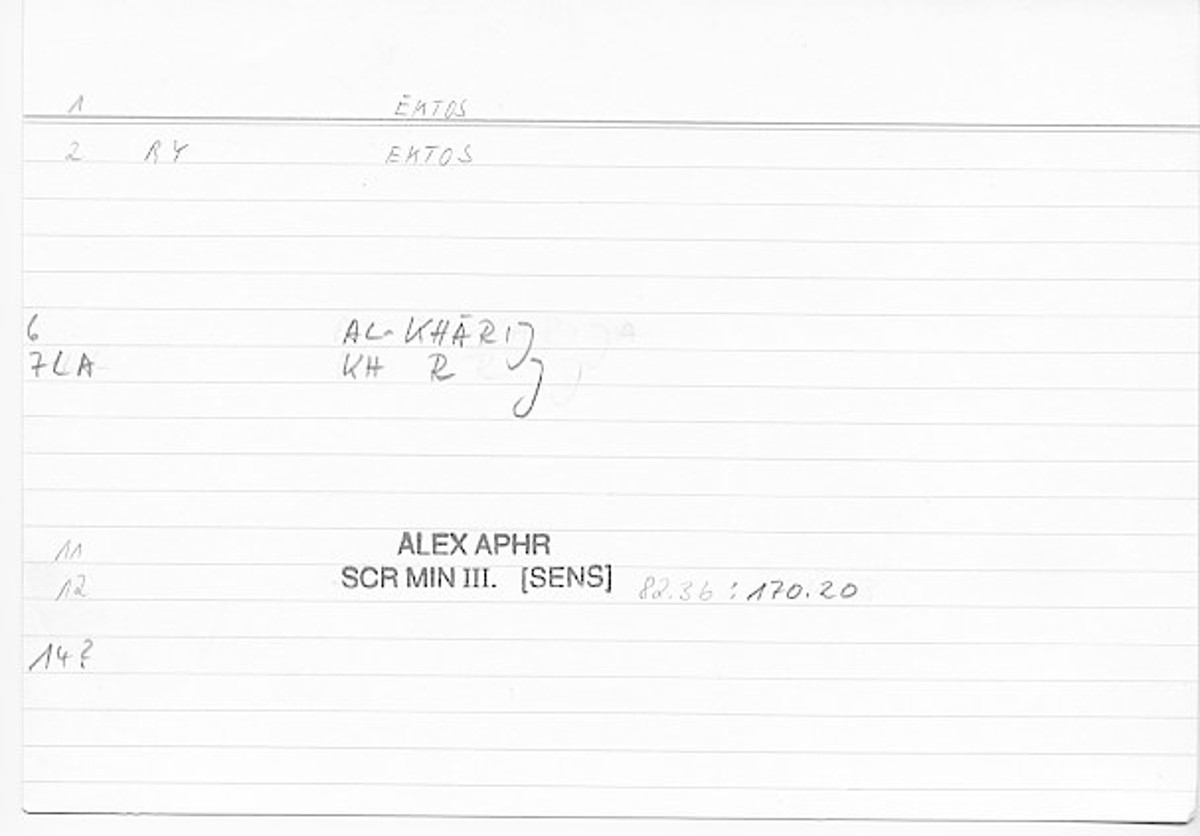 1 ĒKTOS
2 RY EKTOS
6 AL-KHĀRIJ
7LA KH R J
11 ALEX APHR
12 SCR MIN III. [SENS] 82.36 : 170.20
14?